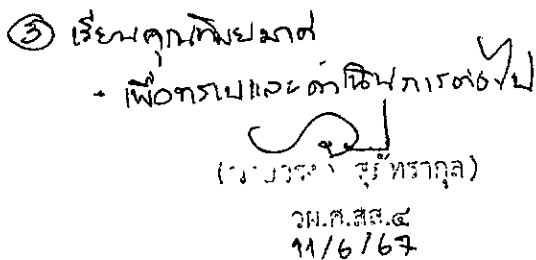 ③ เรียนคุณทิพยมาศ
- เพื่อทราบและดำเนินการต่อไป
วผ.ศ.สส.๔
11/6/67